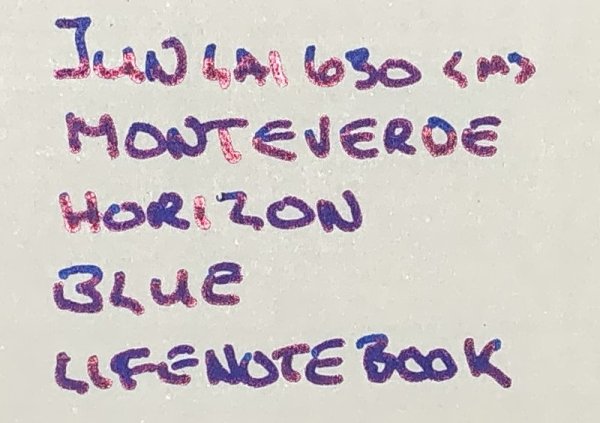 JUNLAI 630 <M>
MONTEVERDE
HORIZON
BLUE
LIFENOTEBOOK